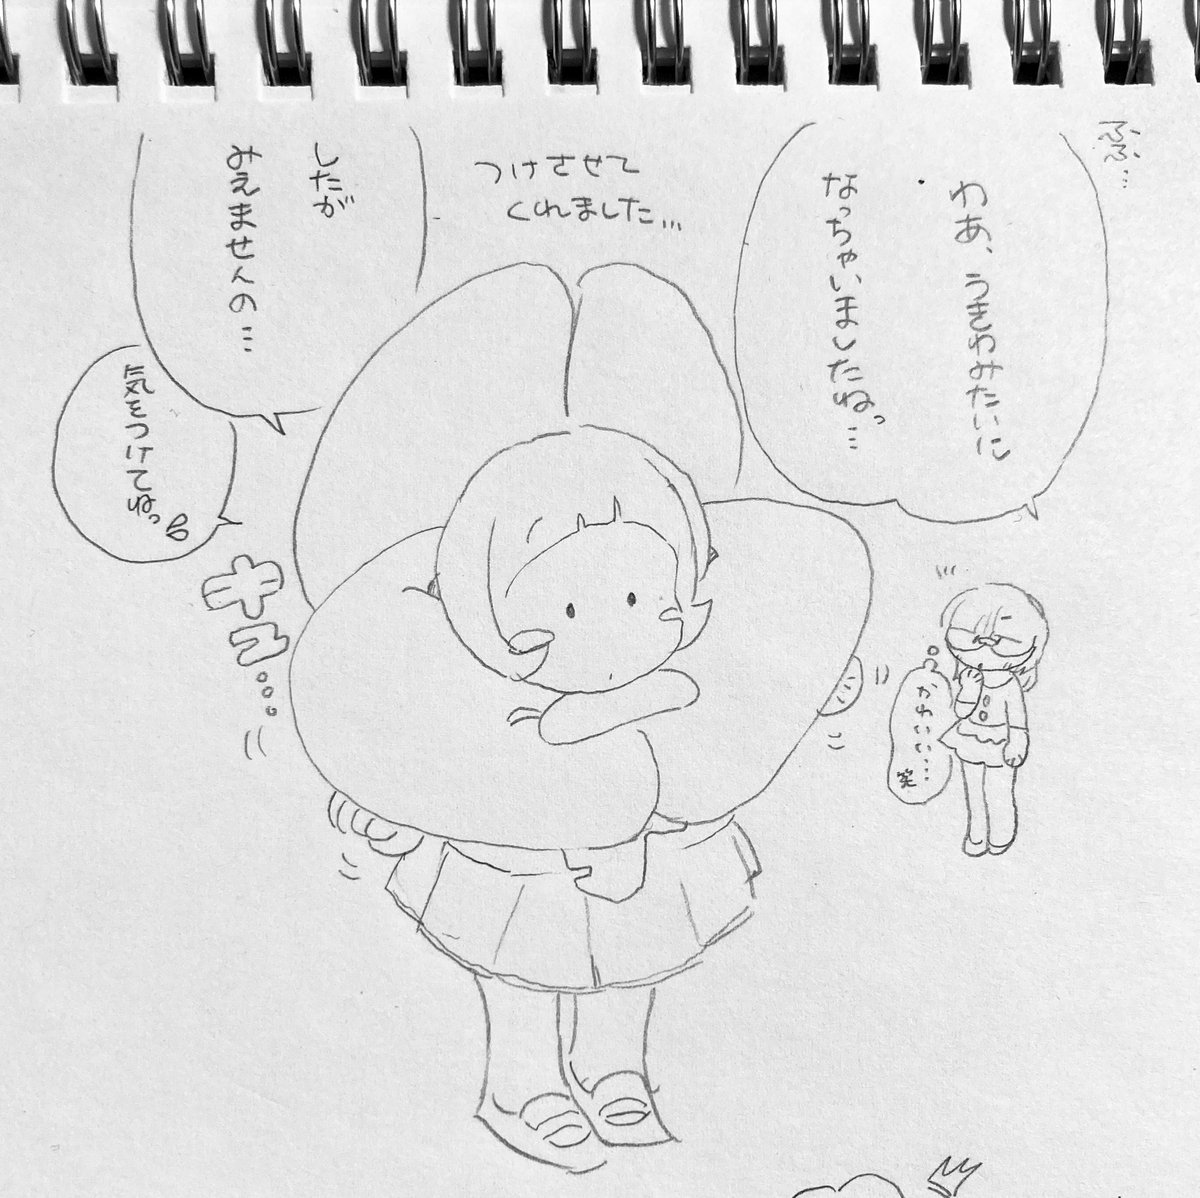 ふふ…
わあ、うきわみたいに
なっちゃいましたねっ…
つけさせて
くれました…
したが
みえませんの…
気をつけてねっ
かわいい…
笑